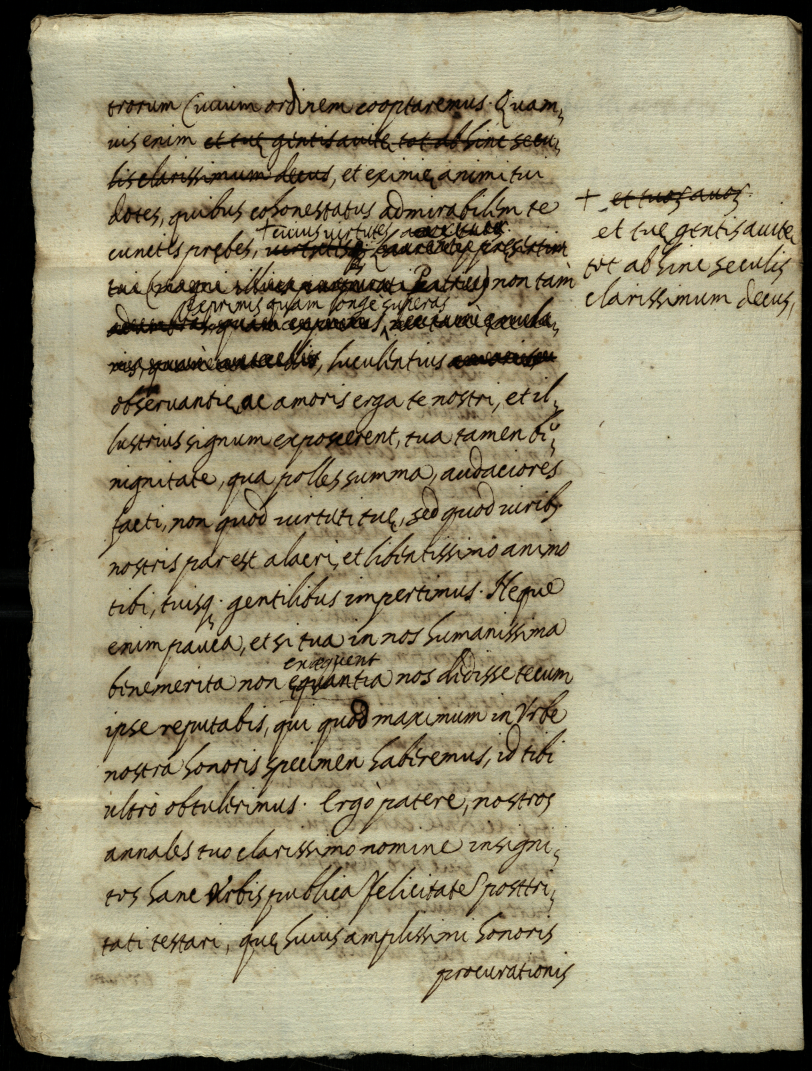 trorum Ciuium ordinem cooptaremus. Quam„
uis enim et tuę gentis auitę tot ab hinc secu„
lis clarissimum decus, et eximię animi tui
dotes, quibus cohonestatus admirabilem te
+ cuius virtutes
cunctis prębes,
tui (magni non tam
exprimis quam longe superas
luculentius
obseruantię, ac amoris erga te nostri, et il„
lustrius signum exposcerent, tua tamen bi„
nignitate, qua polles summa, audaciores
facti, non quod uirtuti tuę, sed quod uirib9
nostris par est alacri, et libentissimo animo
tibi, tuisq. gentilibus impertimus. Neque
enim pauca, etsi tua in nos humanissima
exęquent
benemerita non ęquantia nos dedisse tecum
ipse reputabis, qui quod maximum in Vrbe
nostra honoris specimen haberemus, id tibi
ultrò obtulerimus. Ergò patere, nostros
annales tuo clarissimo nomine insigni„
tos hanc Vrbis publica felicitate posteri„
tati testari, quę huius amplissimi honoris
procurationis
+ et tuos auos
et tuę gentis auitę
tot ab hinc seculis
clarissimum decus,